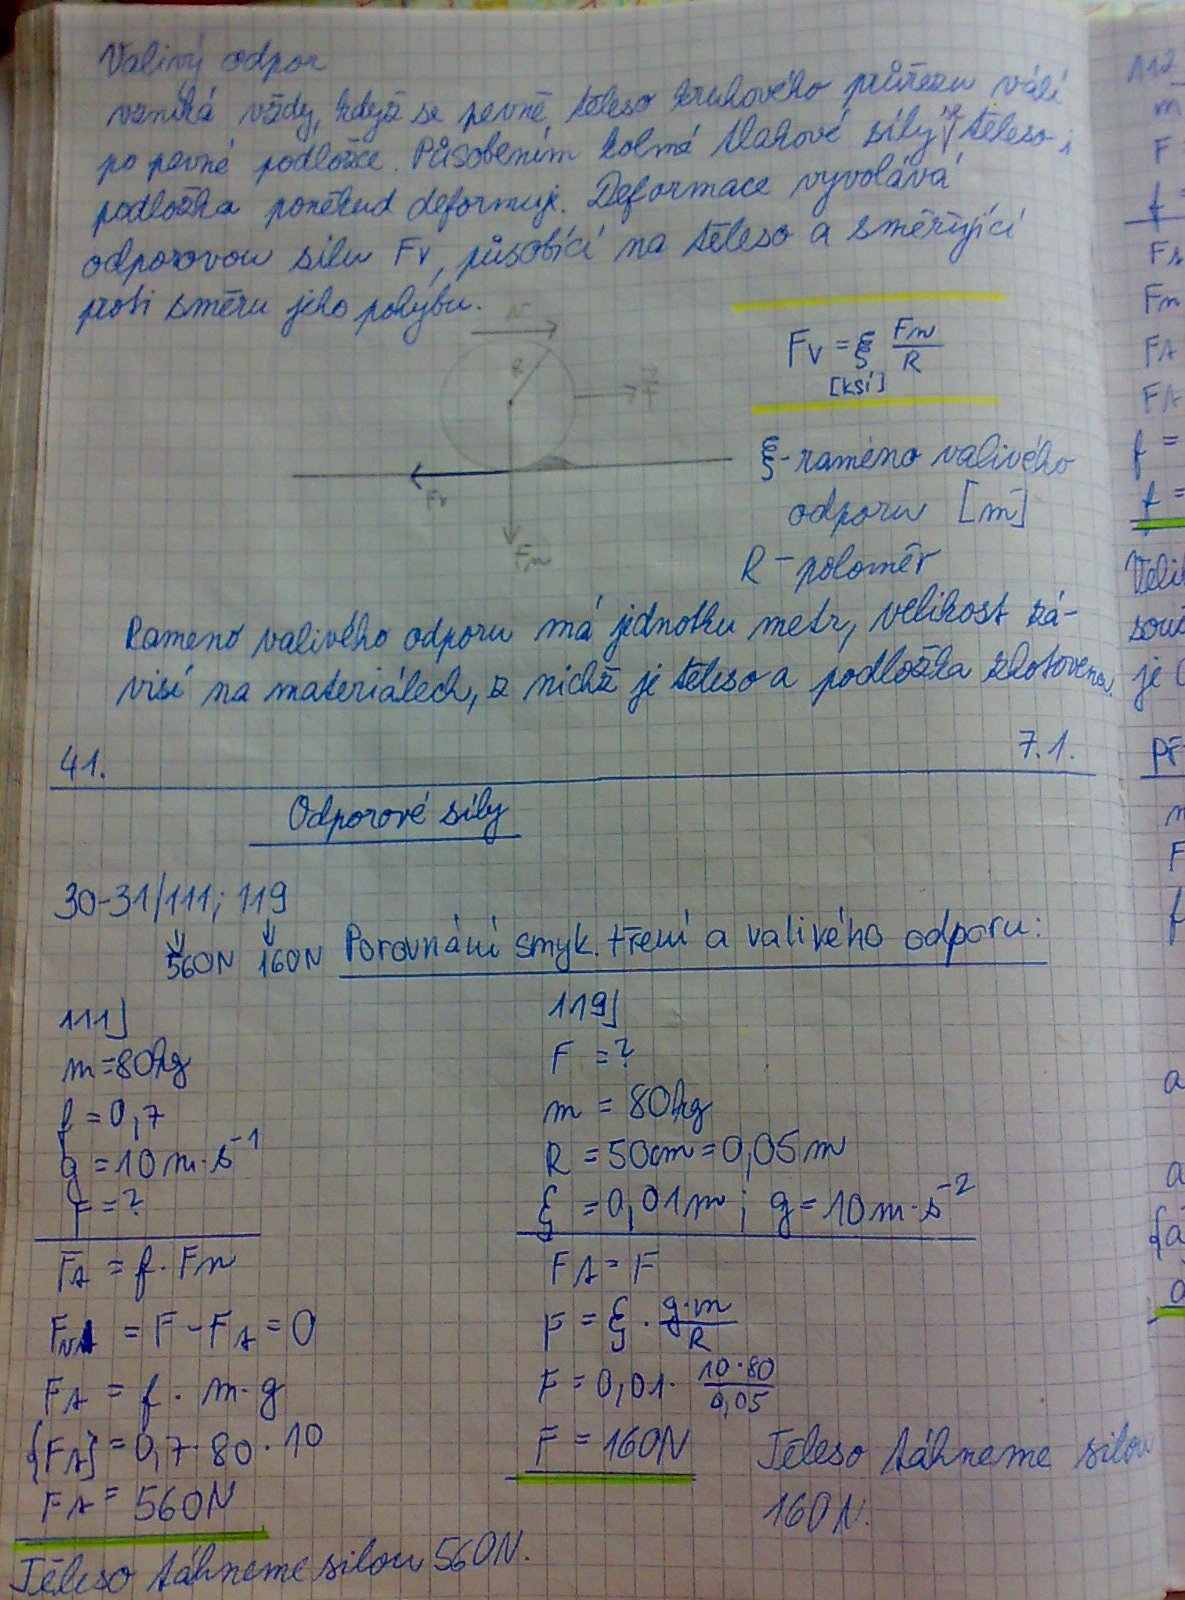 Valivý odpor
vzniká vždy, když se pevné těleso kruhového průřezu válí
po pevné podložce. Působením kolmé tlakové síly se těleso i
podložka poněkud deformuje. Deformace vyvolává
odporovou silu Fv, působící na těleso a směřující
proti směru jeho pohybu.
v
R
F
Fv
Fn
Fv = ξ Fn/R
[ksí]
ξ - raméno valivého
odporu [m]
R - poloměr
Rameno valivého odporu má jednotku metr, velikost zá-
visí na materiálech, z nichž je těleso a podložka zhotovena.
41. 7.1.
Odporové síly
30-31/111; 119
560N 160N Porovnání smyk. tření a valivého odporu:
111)
m = 80kg
f = 0,7
g = 10 m·s⁻¹
F = ?
Ft = f · Fn
= F - Ft = 0
Ft = f · m · g
{Ft} = 0,7 · 80 · 10
Ft = 560N
Těleso táhneme silou 560N.
119)
F = ?
m = 80kg
R = 50cm = 0,05m
ξ = 0,01m; g = 10 m·s⁻²
Ft = F
F = ξ · g·m/R
F = 0,01 · 10·80/0,05
F = 160N
Těleso táhneme silou
160N.
m
F
f =
Ft
Fn
Ft
Ft
f =
f =
je
F
f
a
a